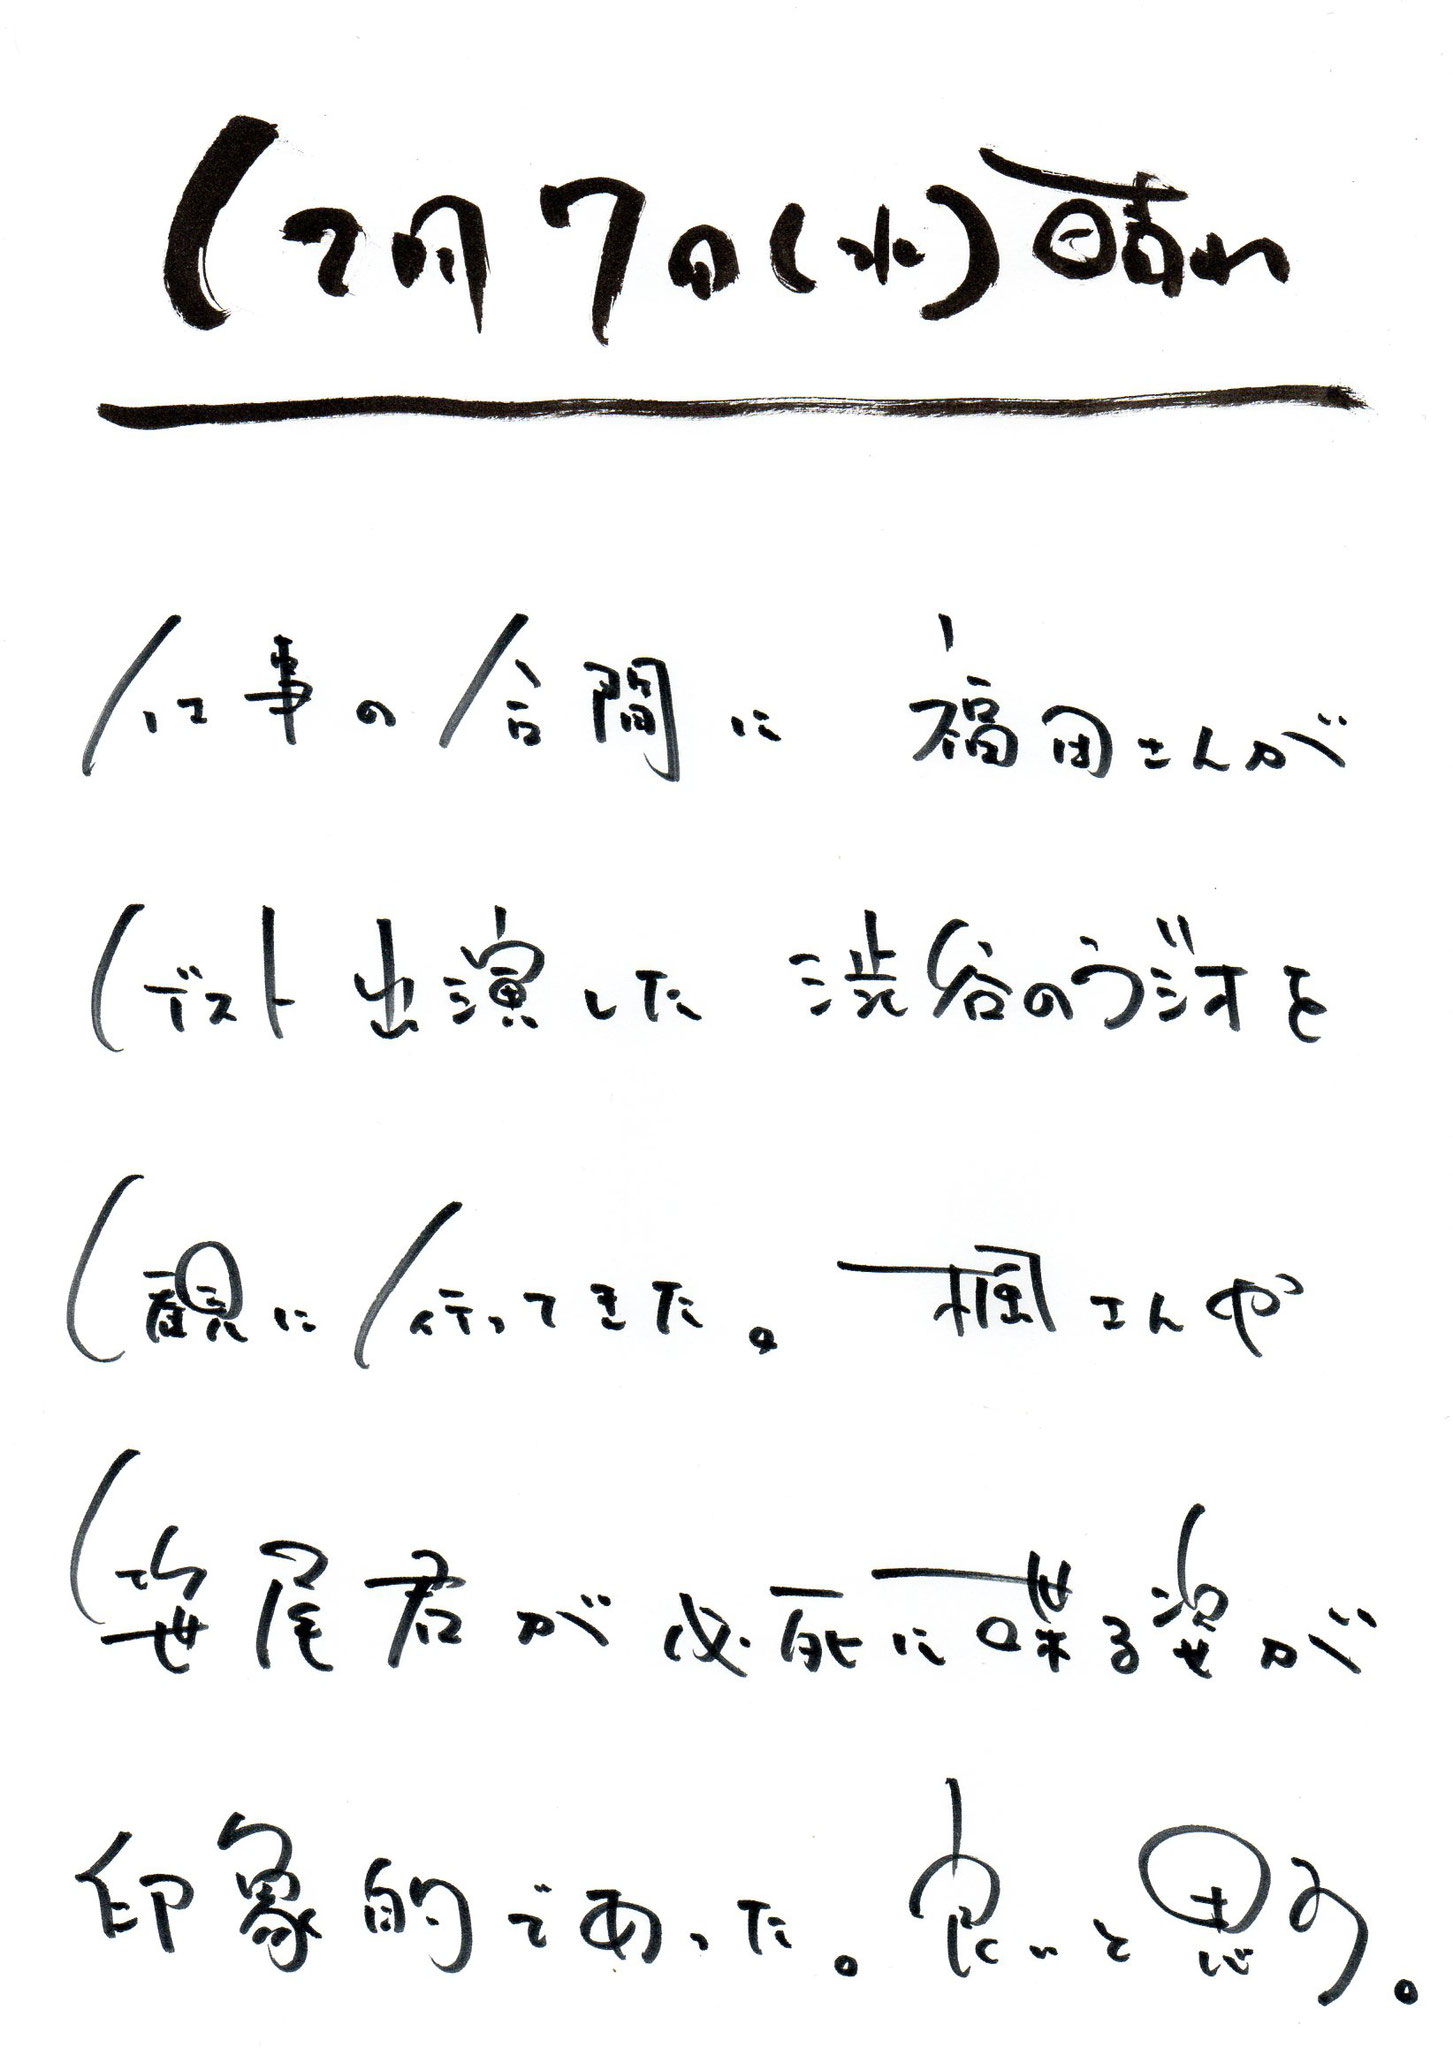 12月7日(水)晴れ
仕事の合間に 福田さんが
ゲスト出演した 渋谷のラジオを
観に行ってきた。 楓さんや
笹尾君が必死に喋る姿が
印象的であった。良いと思う。